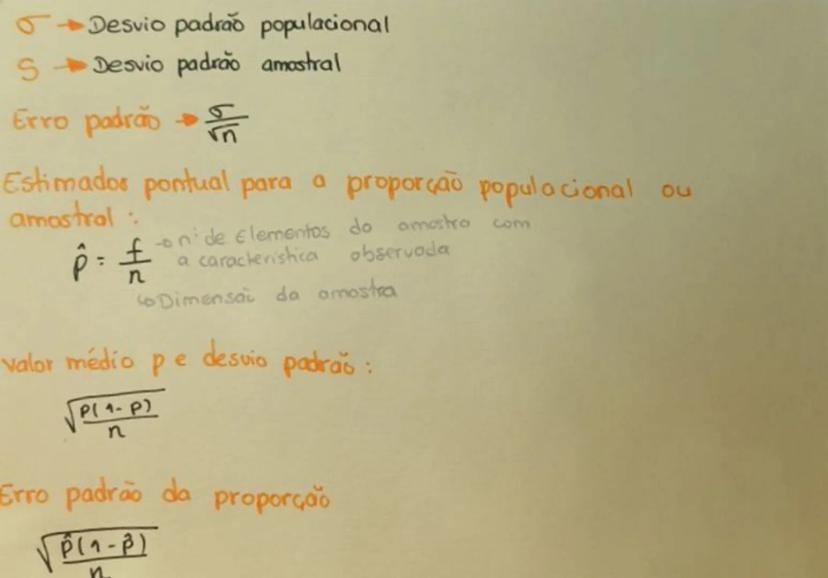 σ → Desvio padrão populacional
S → Desvio padrão amostral
Erro padrão → σ/√n
Estimador pontual para a proporção populacional ou
amostral:
p̂ = f/n → nº de Elementos da amostra com
a característica observada
↳ Dimensão da amostra
Valor médio p e desvio padrão:
√(p(1-p)/n)
Erro padrão da proporção
√(p̂(1-p̂)/n)